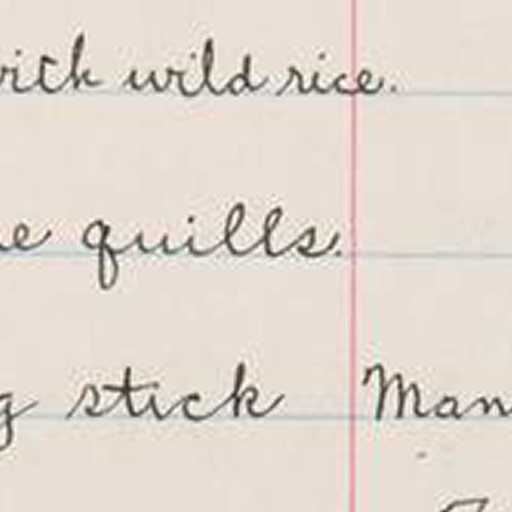 wild rice.
quills.
stick Man